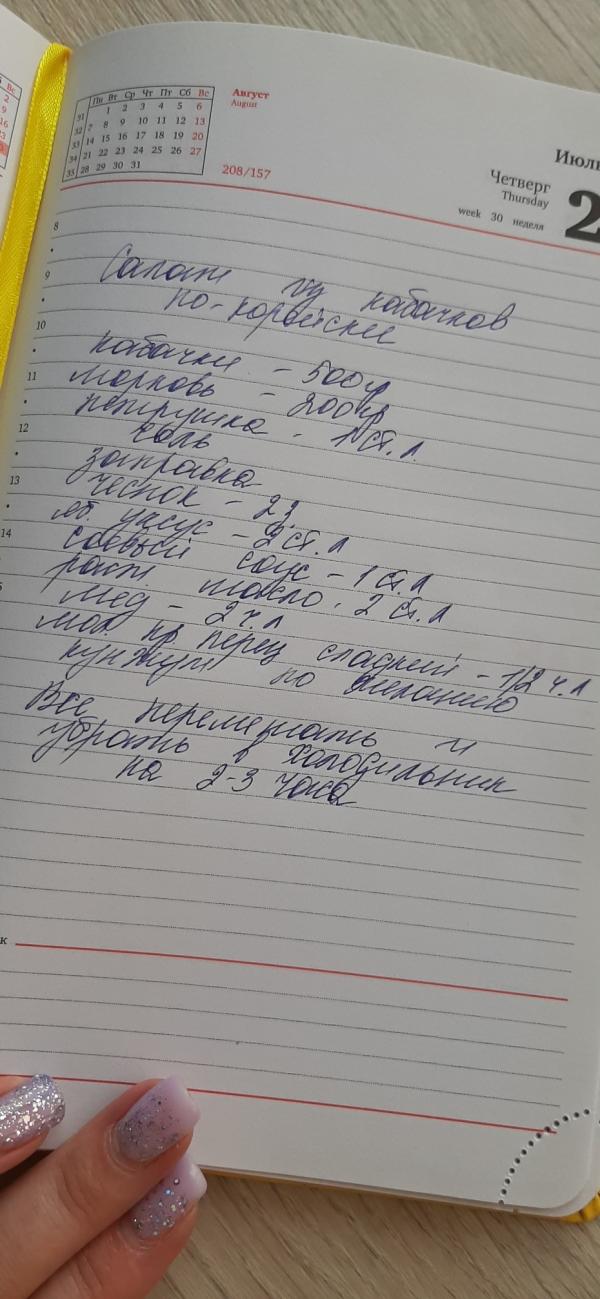 Пн Вт Ср Чт Пт Сб Вс
31 1 2 3 4 5 6
32 7 8 9 10 11 12 13
33 14 15 16 17 18 19 20
34 21 22 23 24 25 26 27
35 28 29 30 31
Август
August
208/157
Июль
Четверг
Thursday
week 30 неделя
2
8
9
10
11
12
13
14
Салат из кабачков
по-корейски
кабачки - 500 гр
морковь - 200 гр
петрушка - 1 ст. л.
соль
заправка
чеснок - 2 з.
яб. уксус - 2 ст. л
соевый соус - 1 ст. л
раст масло. 2 ст. л
мёд - 2 ч. л
мол. кр перец сладкий - 1/2 ч. л
кунжут по желанию
Все перемешать и
убрать в холодильник
на 2-3 часа